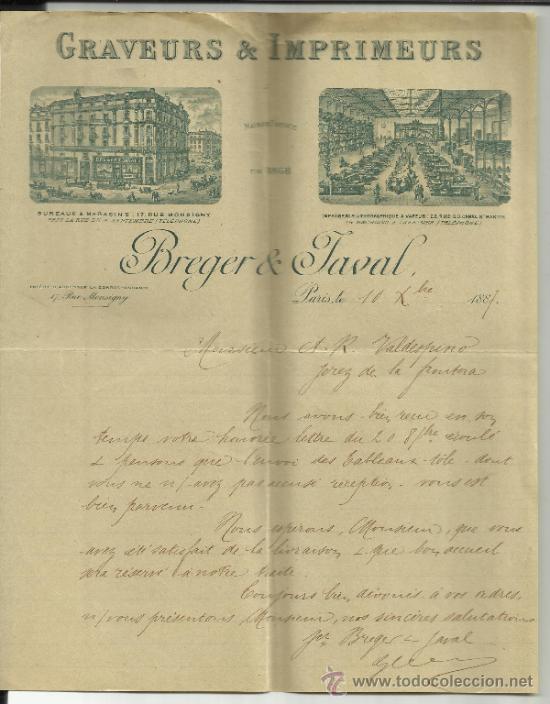 GRAVEURS & IMPRIMEURS
MAISON FONDÉE
EN 1868
BUREAUX & MAGASINS: 17, RUE MONSIGNY
PRÈS LA RUE DU 4 SEPTEMBRE (TÉLÉPHONE)
IMPRIMERIE LITHOGRAPHIQUE À VAPEUR:
(TÉLÉPHONE)
Breger & Javal,
LA CORRESPONDANCE
17, Rue Monsigny
Paris, le 10 Xbre 1887.
Monsieur A. R. Valdespino
Jerez de la frontera
Nous avons bien reçu en son
temps votre honorée lettre du 20 8bre écoulé
& pensons que l'envoi des tableaux-tôle dont
vous ne n/ avez pas accusé réception vous est
bien parvenu.
Nous espérons, Monsieur, que vous
avez été satisfait de la livraison & que bon accueil
sera réservé à notre traite.
Toujours bien dévoués à vos ordres,
n/ vous présentons, Monsieur, nos sincères salutations
Pr Breger & Javal
todocoleccion
www.todocoleccion.net